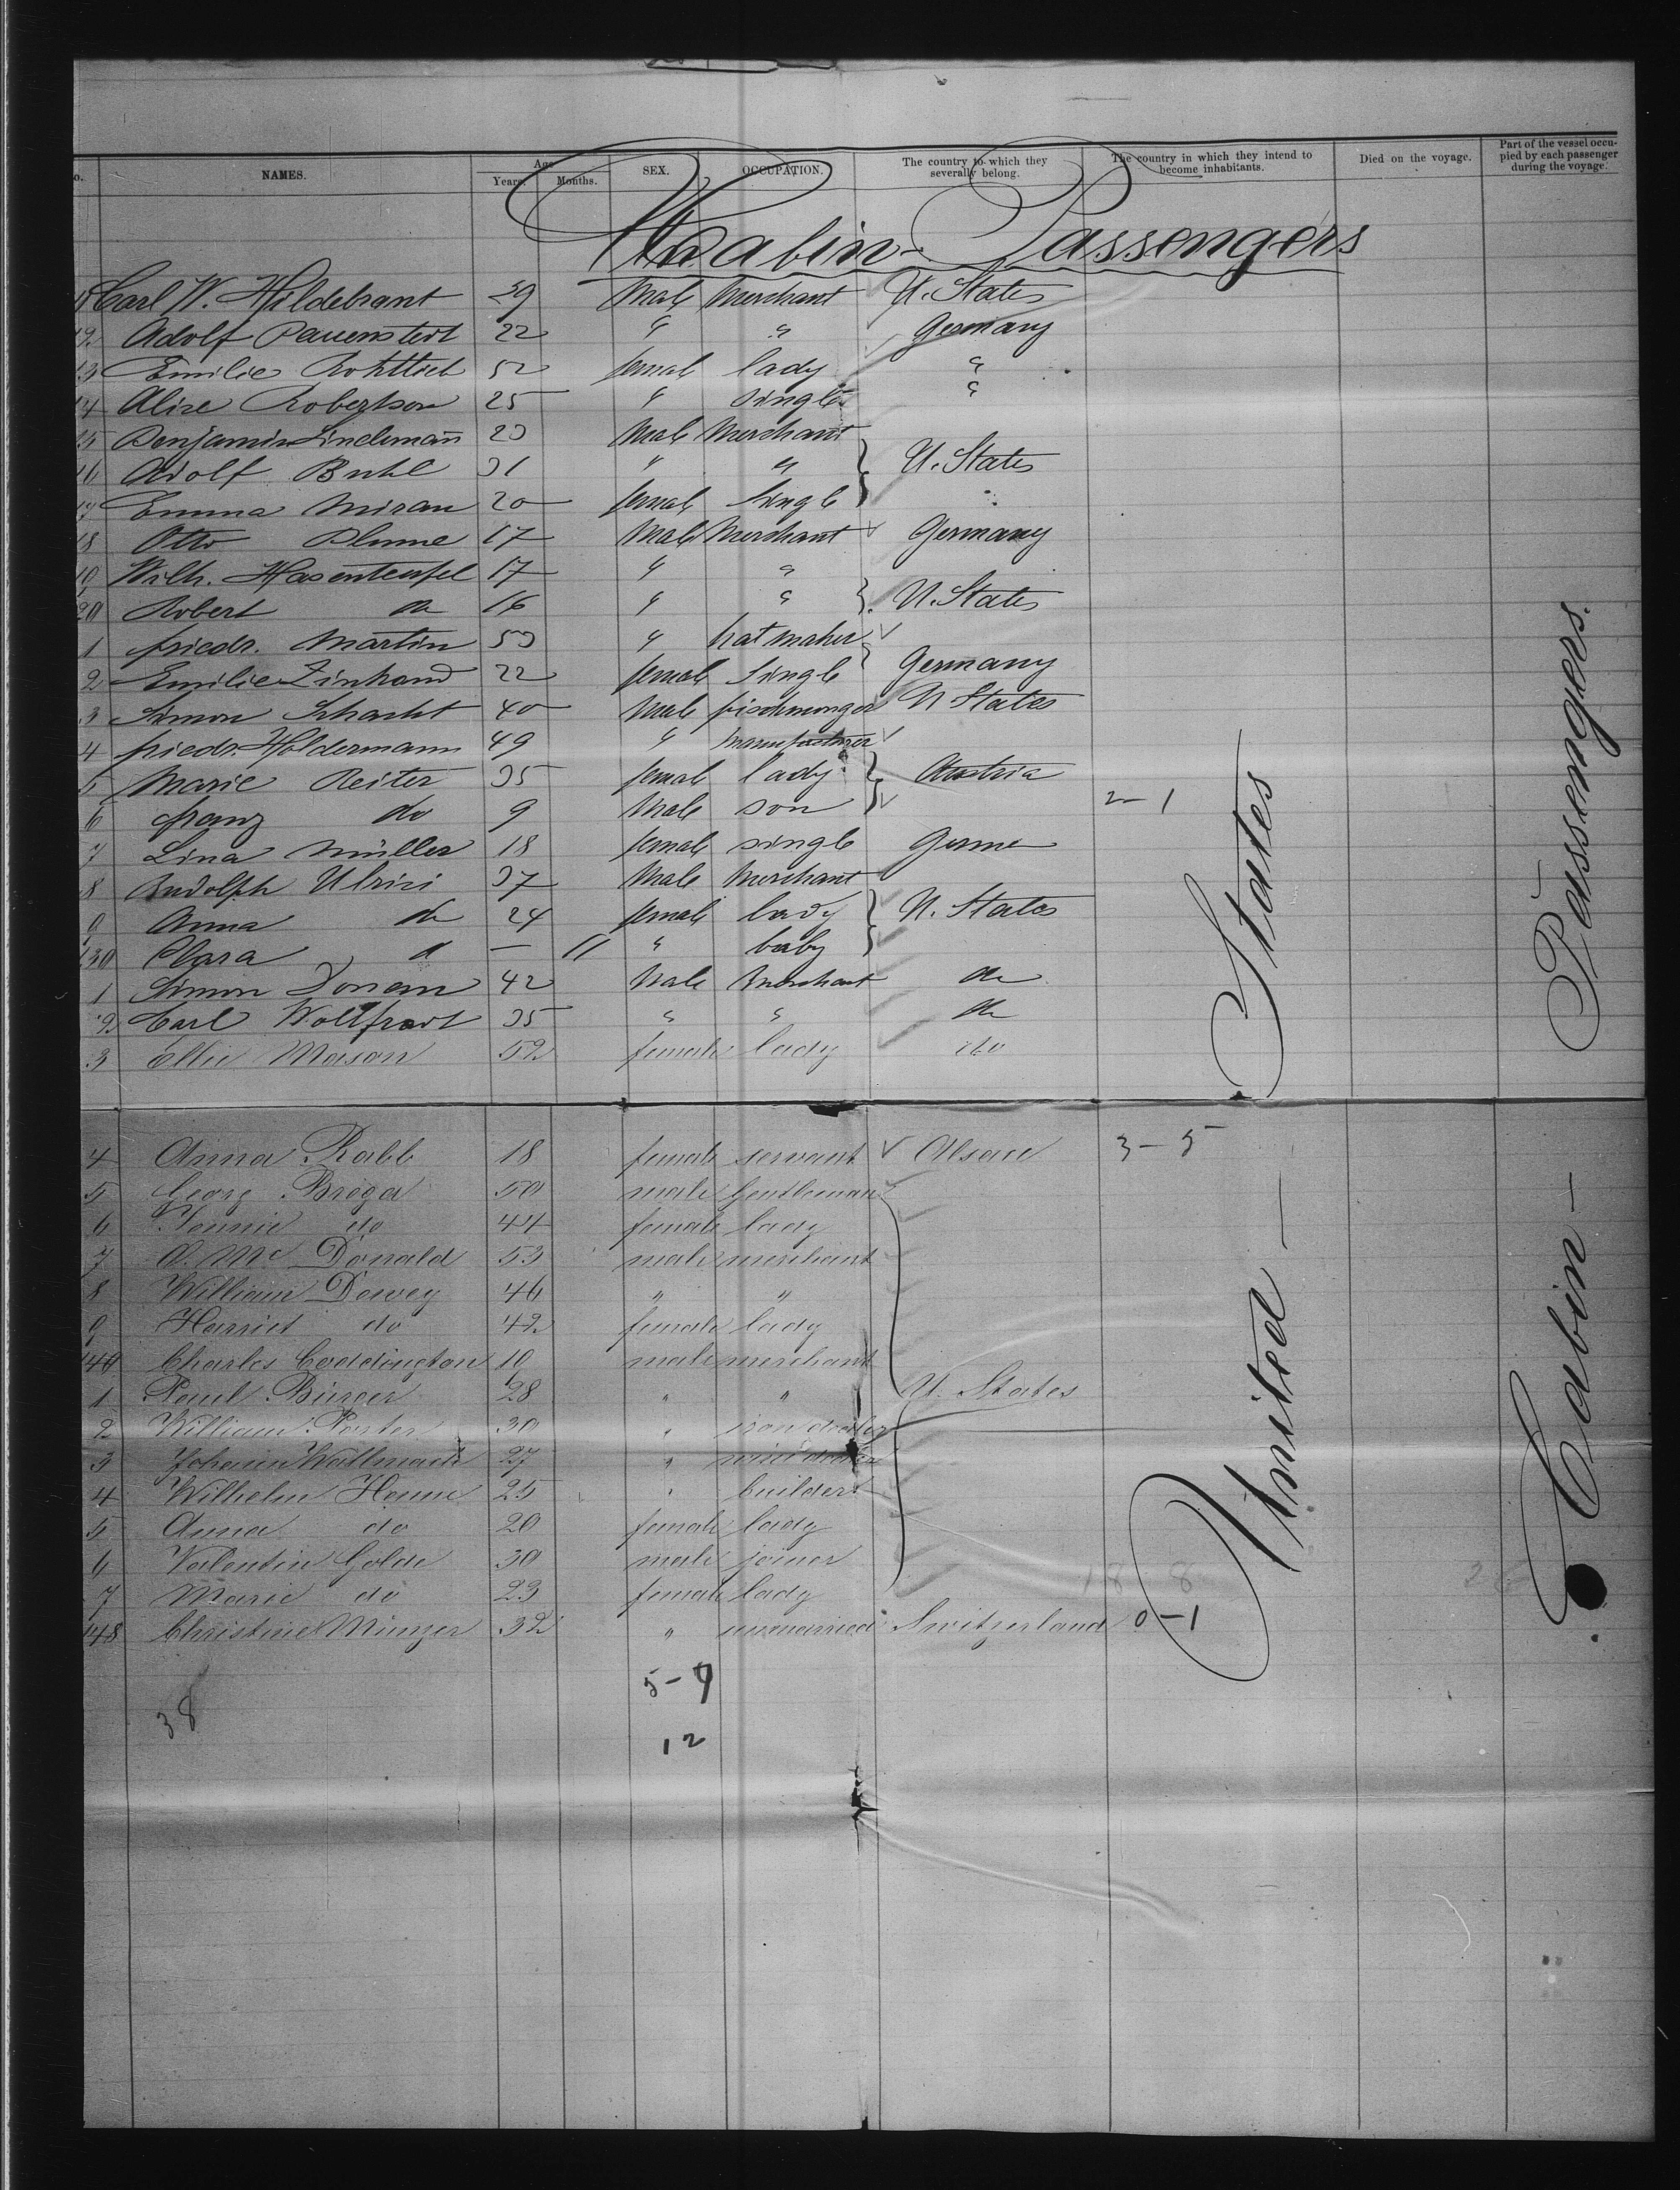 No. NAMES. Age Years. Months. SEX. OCCUPATION. The country to which they severally belong. The country in which they intend to become inhabitants. Died on the voyage. Part of the vessel occupied by each passenger during the voyage.
Cabin-Passengers
Carl W. Hildebrant 29 Male Merchant U. States
12 Adolf Pavenstedt 22 " " Germany
13 Emilie 52 female lady "
14 Alice Robertson 25 " Single "
15 Benjamin Lindemann 23 Male Merchant
16 Adolf Buhl 31 " " } U. States
17 Emma Miran 20 female Single
18 Otto Blume 17 Male Merchant Germany
19 Wilh. Hasenteufel 17 " "
20 Robert do 16 " " } U. States
1 friedr. Martin 53 " hat maker
2 Emilie Zinhand 22 female Single Germany
3 Simon Schacht 40 Male fischmonger U States
4 friedr. Holdermann 49 " manufacturer
5 Marie Reiter 35 female lady } Austria
6 franz do 9 Male son 2-1
7 Lina Müller 18 female single Germ
8 Rudolph Ulrici 37 Male Merchant
9 Anna do 24 female lady } U. States
130 Clara d — 11 " baby
1 Simon 42 Male Merchant do
2 Carl 35 " " do
3 Ellie Mason 52 female lady do
4 Anna Rabb 18 female servant Alsace 3-5
5 Georg Broga 50 male Gentleman
6 do 44 female lady
7 A. Mc Donald 53 male merchant
8 William Dewey 46 " "
9 Harriet do 42 female lady
140 Charles Coddington 10 male merchant
1 Paul Bürger 28 " " U. States
2 William Porter 30 " iron dealer
3 Johann 27 "
4 Wilhelm Henne 25 " builder
5 Anna do 20 female lady
6 Valentin Golde 30 male joiner
7 Marie do 23 female lady 18 8
148 Christine Münzer 32 " unmarried Switzerland 0-1
5-7
38
12
United States
Cabin-Passengers.